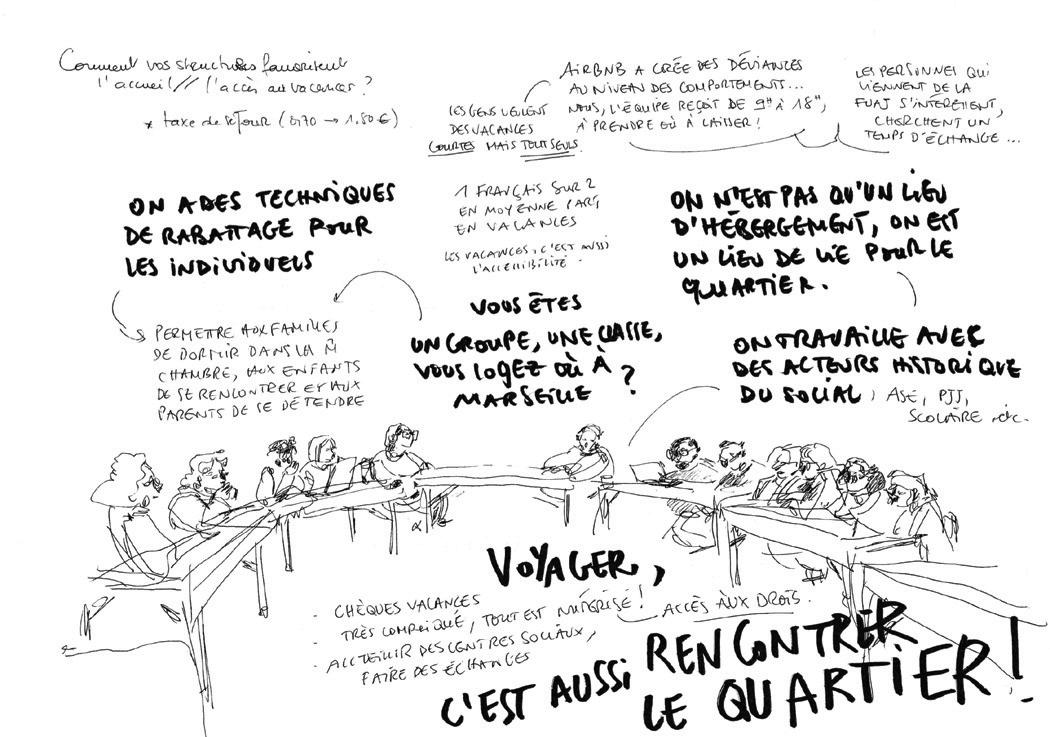 Comment vos structures favorisent
l'accueil // l'accès aux vacances ?
* taxe de séjour (0,70 → 1.80 €)
LES GENS VEULENT
DES VACANCES
COURTES MAIS TOUT SEULS.
AIRBNB A CRÉE DES DÉVIANCES
AU NIVEAU DES COMPORTEMENTS...
NOUS, L'ÉQUIPE REÇOIT DE 9H À 18H,
À PRENDRE OÙ À LAISSER !
LES PERSONNES QUI
VIENNENT DE LA
FUAJ S'INTERESSENT,
CHERCHENT UN
TEMPS D'ÉCHANGE...
ON A DES TECHNIQUES
DE RABATTAGE POUR
LES INDIVIDUELS
1 FRANÇAIS SUR 2
EN MOYENNE PART
EN VACANCES
LES VACANCES, C'EST AUSSI
L'ACCESSIBILITÉ.
ON N'EST PAS QU'UN LIEU
D'HÉBERGEMENT, ON EST
UN LIEU DE VIE POUR LE
QUARTIER.
PERMETTRE AUX FAMILLES
DE DORMIR DANS LA M̂
CHAMBRE, AUX ENFANTS
DE SE RENCONTRER ET AUX
PARENTS DE SE DÉTENDRE
VOUS ÊTES
UN GROUPE, UNE CLASSE,
VOUS LOGEZ OÙ À
MARSEILLE ?
ON TRAVAILLE AVEC
DES ACTEURS HISTORIQUE
DU SOCIAL, ASE, PJJ,
SCOLAIRE etc.
VOYAGER,
- CHÈQUES VACANCES
- TRÈS COMPLIQUÉ, TOUT EST NUMÉRISÉ !
ACCÈS AUX DROITS.
- ACCUEILLIR DES CENTRES SOCIAUX,
FAIRE DES ÉCHANGES
C'EST AUSSI RENCONTRER
LE QUARTIER !